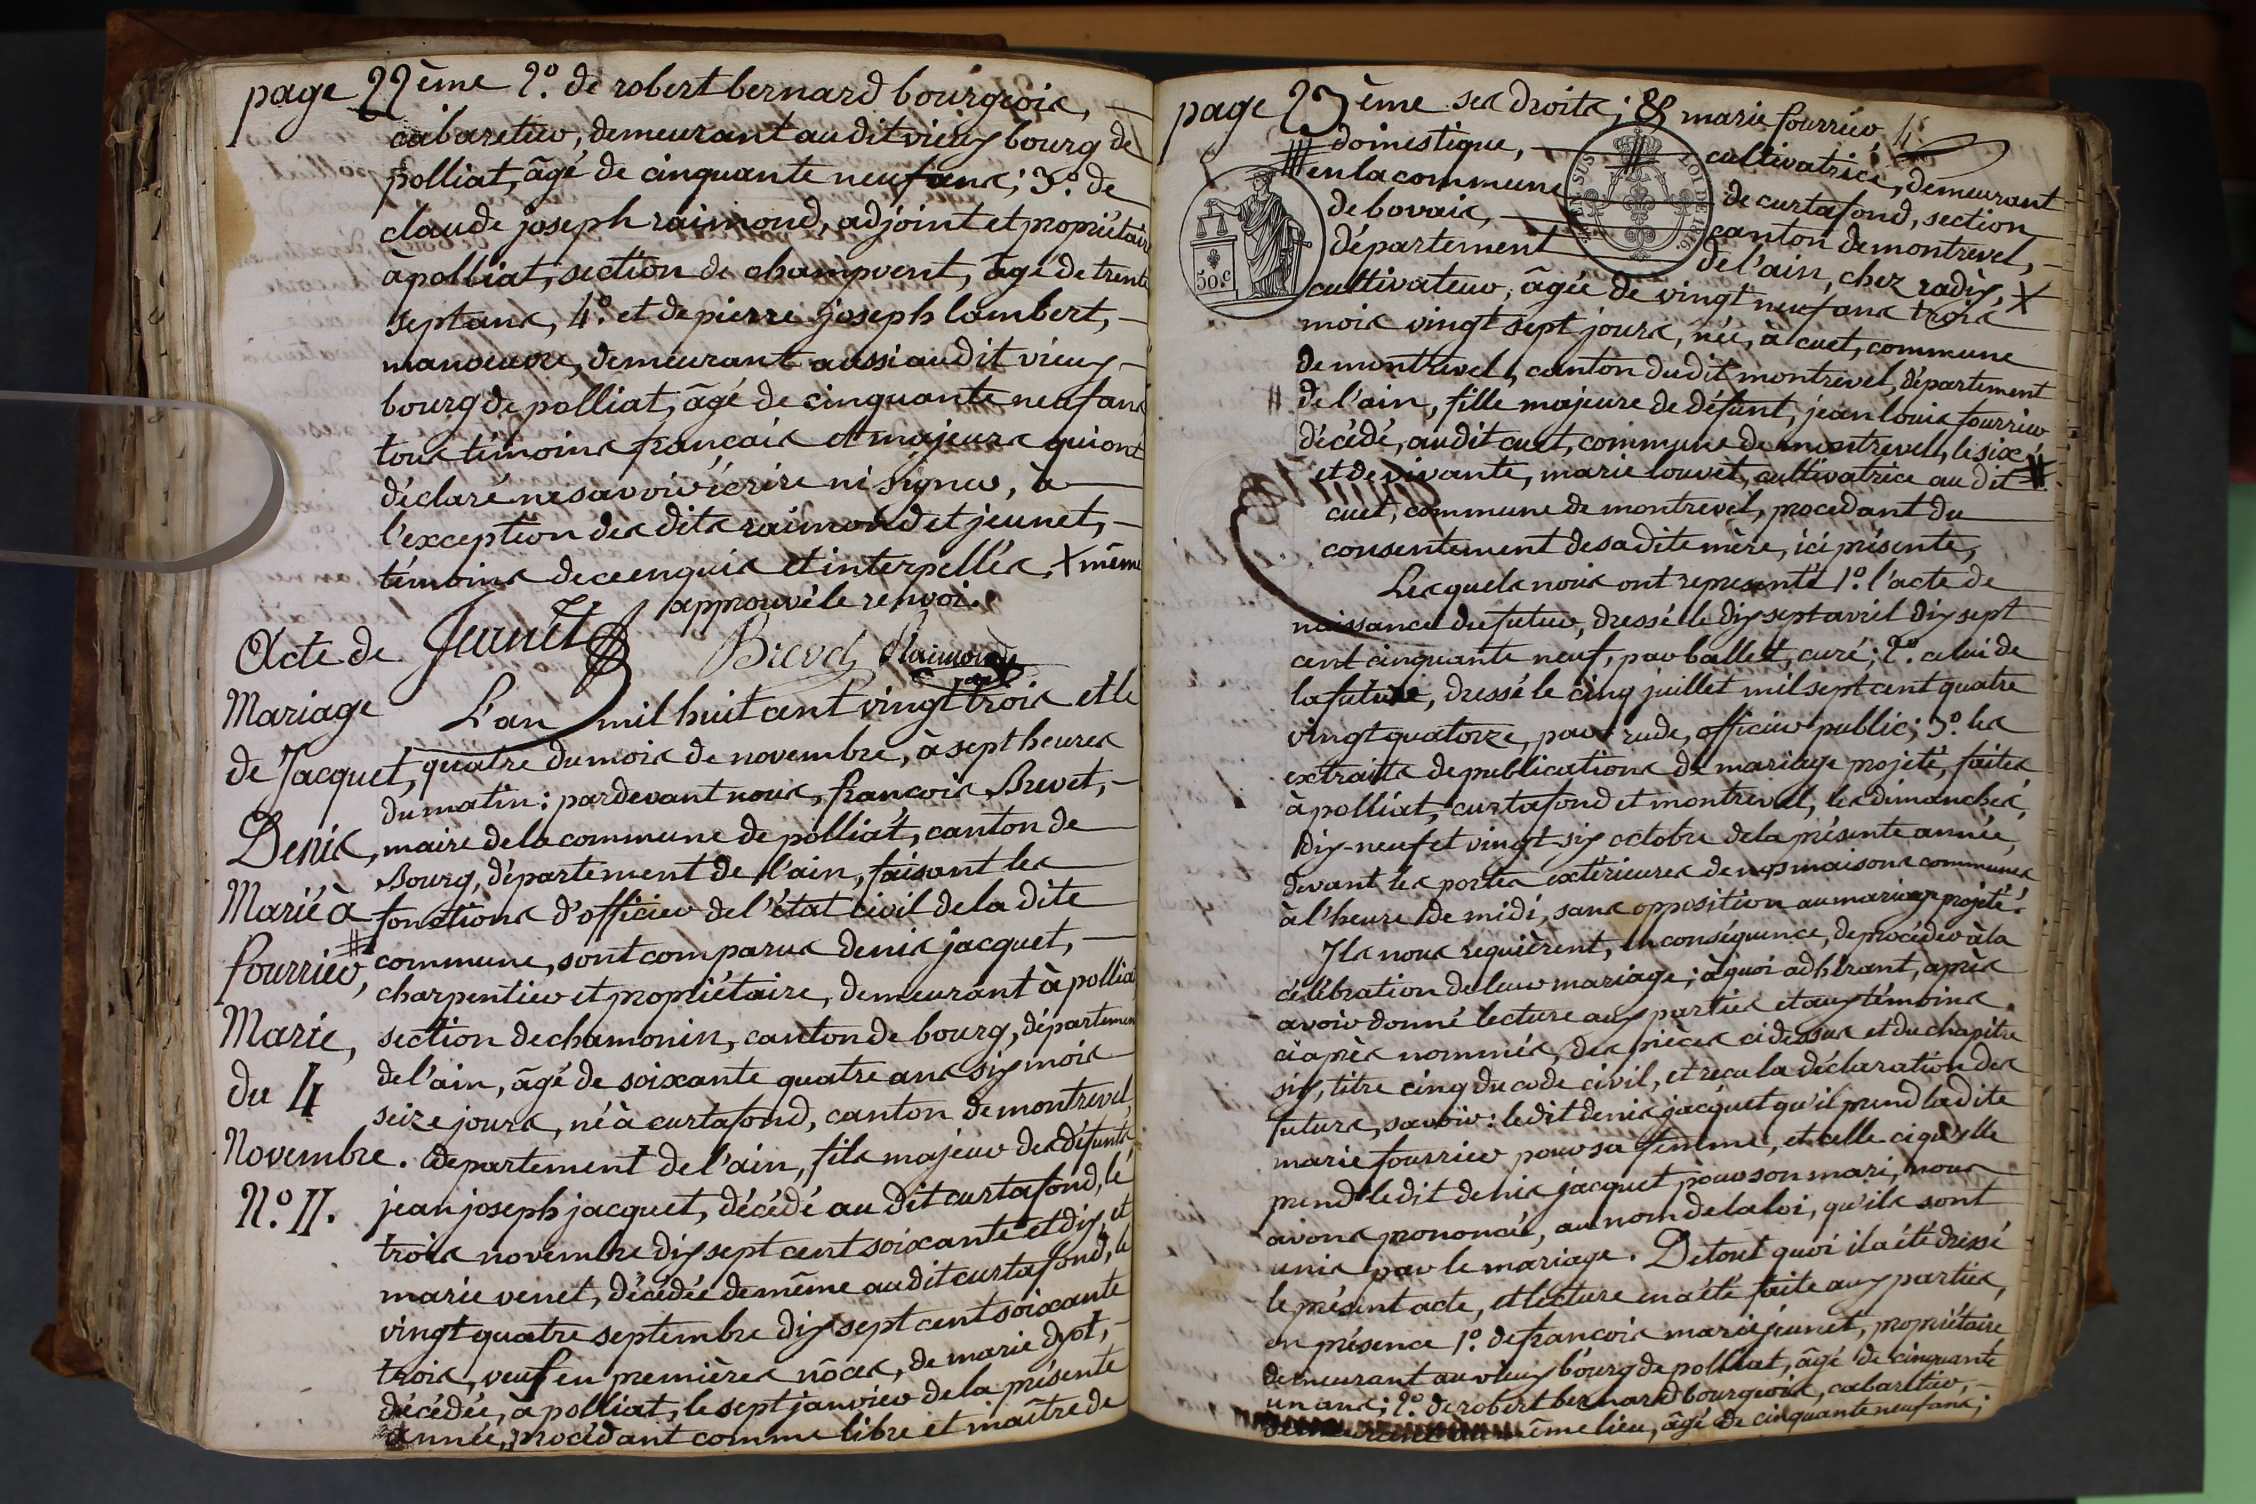 page 22ème 2º. de robert bernard bourgeois,
cabaretier, demeurant au dit vieux bourg de
polliat, âgé de cinquante neuf ans; 3º. de
claude joseph raimond, adjoint et propriétaire
à polliat, section de champvent, âgé de trente
sept ans, 4º. et de pierre joseph lambert,
manoeuvre, demeurant aussi au dit vieux
bourg de polliat, âgé de cinquante neuf ans
tous témoins français et majeurs qui ont
déclaré ne savoir écrire ni signer, à
l'exception des dits raimond et jeunet,
témoins de ce enquis et interpellés, X même
approuvé le renvoi.
Jeunet Brevet Raimond
Acte de
Mariage
de Jacquet,
Denis,
Marié à
fourrier,
Marie,
du 4
Novembre.
Nº. II.
L'an mil huit cent vingt trois et le
quatre du mois de novembre, à sept heures
du matin: pardevant nous, françois Brevet,
maire de la commune de polliat, canton de
Bourg, département de l'ain, faisant les
fonctions d'officier de l'état civil de la dite
commune, sont comparus denis jacquet,
charpentier et propriétaire, demeurant à polliat
section de chamonin, canton de bourg, département
de l'ain, âgé de soixante quatre ans six mois
seize jours, né à curtafond, canton de montrevel
département de l'ain, fils majeur des défunts,
jean joseph jacquet, décédé au dit curtafond, le
trois novembre dix sept cent soixante et dix, et
marie venet, décédée de même au dit curtafond, le
vingt quatre septembre dix sept cent soixante
trois, veuf en premières nôces, de marie dyot,
décédée, à polliat, le sept janvier de la présente
année, procédant comme libre et maître de
page 23ème ses droits; & marie fourrier,
domestique, cultivatrice, demeurant
en la commune de curtafond, section
de bovais, canton de montrevel,
département de l'ain, chez radix, X
50c
LOI DE 1816
cultivateur, âgée de vingt neuf ans trois
mois vingt sept jours, née, à cuet, commune
de montrevel, canton du dit montrevel, département
de l'ain, fille majeure de défunt, jean louis fourrier
décédé, au dit cuet, commune de montrevel, le six
et de vivante, marie louvet, cultivatrice au dit
cuet, commune de montrevel, procedant du
consentement de sa dite mère, ici présente,
Lesquels nous ont representé 1º. l'acte de
naissance du futur, dressé le dix sept avril dix sept
cent cinquante neuf, par ballet, curé; 2º. celui de
la future, dressé le cinq juillet mil sept cent quatre
vingt quatorze, par rude, officier public; 3º. les
extraits de publications de mariage projeté, faites
à polliat, curtafond et montrevel, les dimanches,
dix-neuf et vingt-six octobre de la présente année,
devant les portes extérieures de nos maisons communes
à l'heure de midi, sans opposition au mariage projeté.
Ils nous requièrent, en conséquence, de procéder à la
célébration de leur mariage; à quoi adhérant, après
avoir donné lecture aux parties et aux témoins
ci après nommés, des pièces ci dessus et du chapitre
six, titre cinq du code civil, et reçu la déclaration des
futurs, savoir: le dit denis jacquet qu'il prend la dite
marie fourrier pour sa femme, et celle ci qu'elle
prend le dit denis jacquet pour son mari, nous
avons prononcé, au nom de la loi, qu'ils sont
unis par le mariage. De tout quoi il a été dressé
le présent acte, et lecture en a été faite aux parties,
en présence 1º. de françois marie jeunet, propriétaire
demeurant au vieux bourg de polliat, âgé de cinquante
un ans; 2º. de robert bernard bourgeois, cabaretier,
demeurant au même lieu, âgé de cinquante neuf ans;